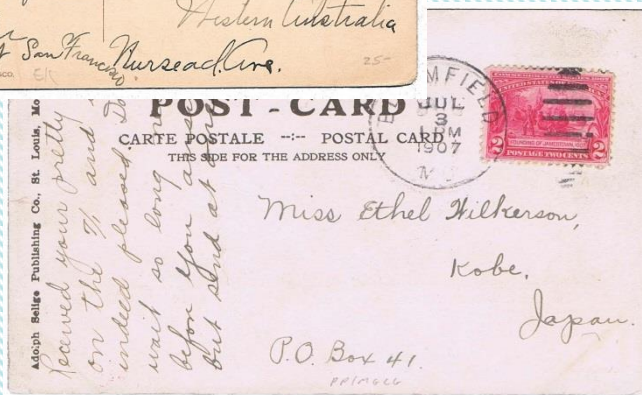 Western Australia
San Francisco
Nursead. Ave.
25-
POST - CARD
CARTE POSTALE --:-- POSTAL CARD
THIS SIDE FOR THE ADDRESS ONLY
MFIELD
JUL
3
M
1907
POSTAGE TWO CENTS
2 2
Miss Ethel Wilkerson,
Kobe,
Japan.
P.O. Box 41.
Adolph Selige Publishing Co., St. Louis, Mo
Received your pretty
on the 7/1 and
indeed pleased. Do
wait so long
before you
but send at